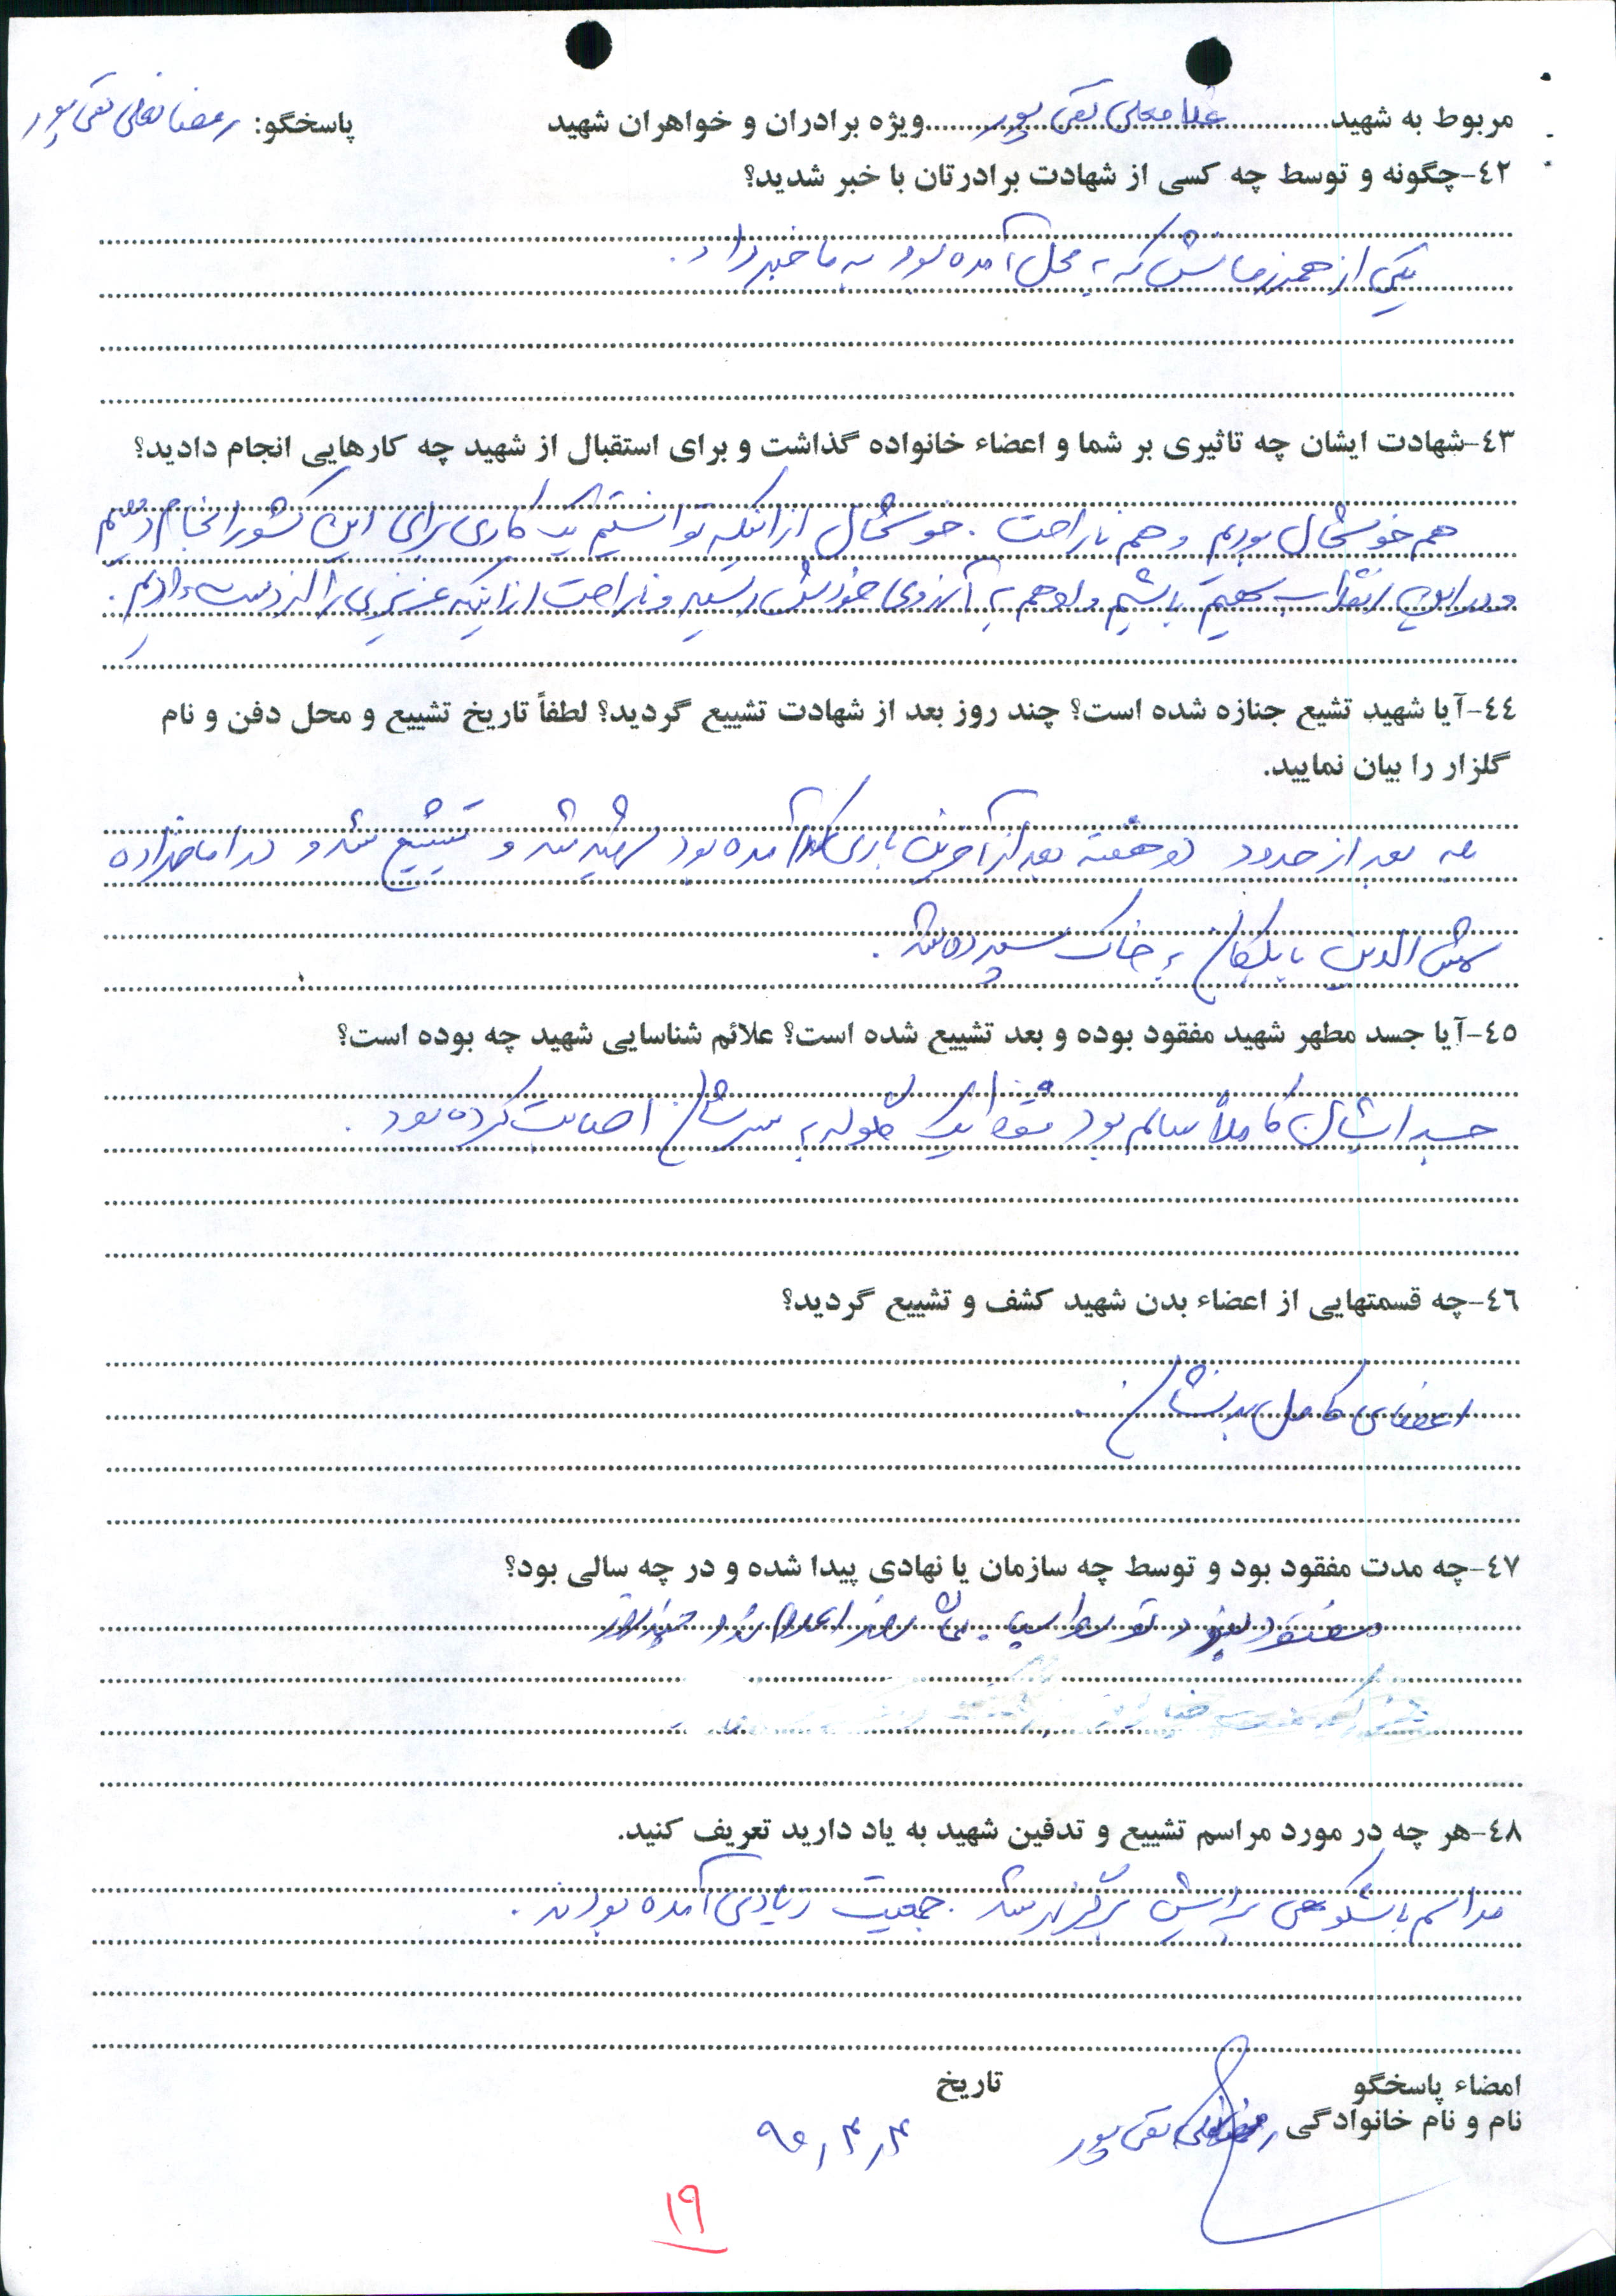 مربوط به شهید غلامعلی تقی پور ویژه برادران و خواهران شهید پاسخگو: رمضانعلی تقی پور
٤٢-چگونه و توسط چه کسی از شهادت برادرتان با خبر شدید؟
یکی از همرزمانش که به محل آمده بود به ما خبر داد.
٤٣-شهادت ایشان چه تاثیری بر شما و اعضاء خانواده گذاشت و برای استقبال از شهید چه کارهایی انجام دادید؟
هم خوشحال بودیم و هم ناراحت. خوشحال از اینکه توانستیم یک کاری برای این کشور انجام دهیم
و در این انقلاب سهیم باشیم و او هم به آرزوی خودش رسید و ناراحت از اینکه عزیزی را از دست دادیم.
٤٤-آیا شهید تشیع جنازه شده است؟ چند روز بعد از شهادت تشییع گردید؟ لطفاً تاریخ تشییع و محل دفن و نام
گلزار را بیان نمایید.
بله بعد از حدود دو هفته بعد از آخرین باری که آمده بود شهید شد و تشییع شد و در امامزاده
شمس الدین بایکلان به خاک سپرده شد.
٤٥-آیا جسد مطهر شهید مفقود بوده و بعد تشییع شده است؟ علائم شناسایی شهید چه بوده است؟
جسد ایشان کاملاً سالم بود فقط یک گلوله به سرشان اصابت کرده بود.
٤٦-چه قسمتهایی از اعضاء بدن شهید کشف و تشییع گردید؟
اعضای کامل بدنشان.
٤٧-چه مدت مفقود بود و توسط چه سازمان یا نهادی پیدا شده و در چه سالی بود؟
مفقود نبود توسط سپاه
٤٨-هر چه در مورد مراسم تشییع و تدفین شهید به یاد دارید تعریف کنید.
مراسم باشکوهی برایش برگزار شد. جمعیت زیادی آمده بودند.
امضاء پاسخگو تاریخ
نام و نام خانوادگی رمضانعلی تقی پور ۹۰٫۴٫۴
۱۹